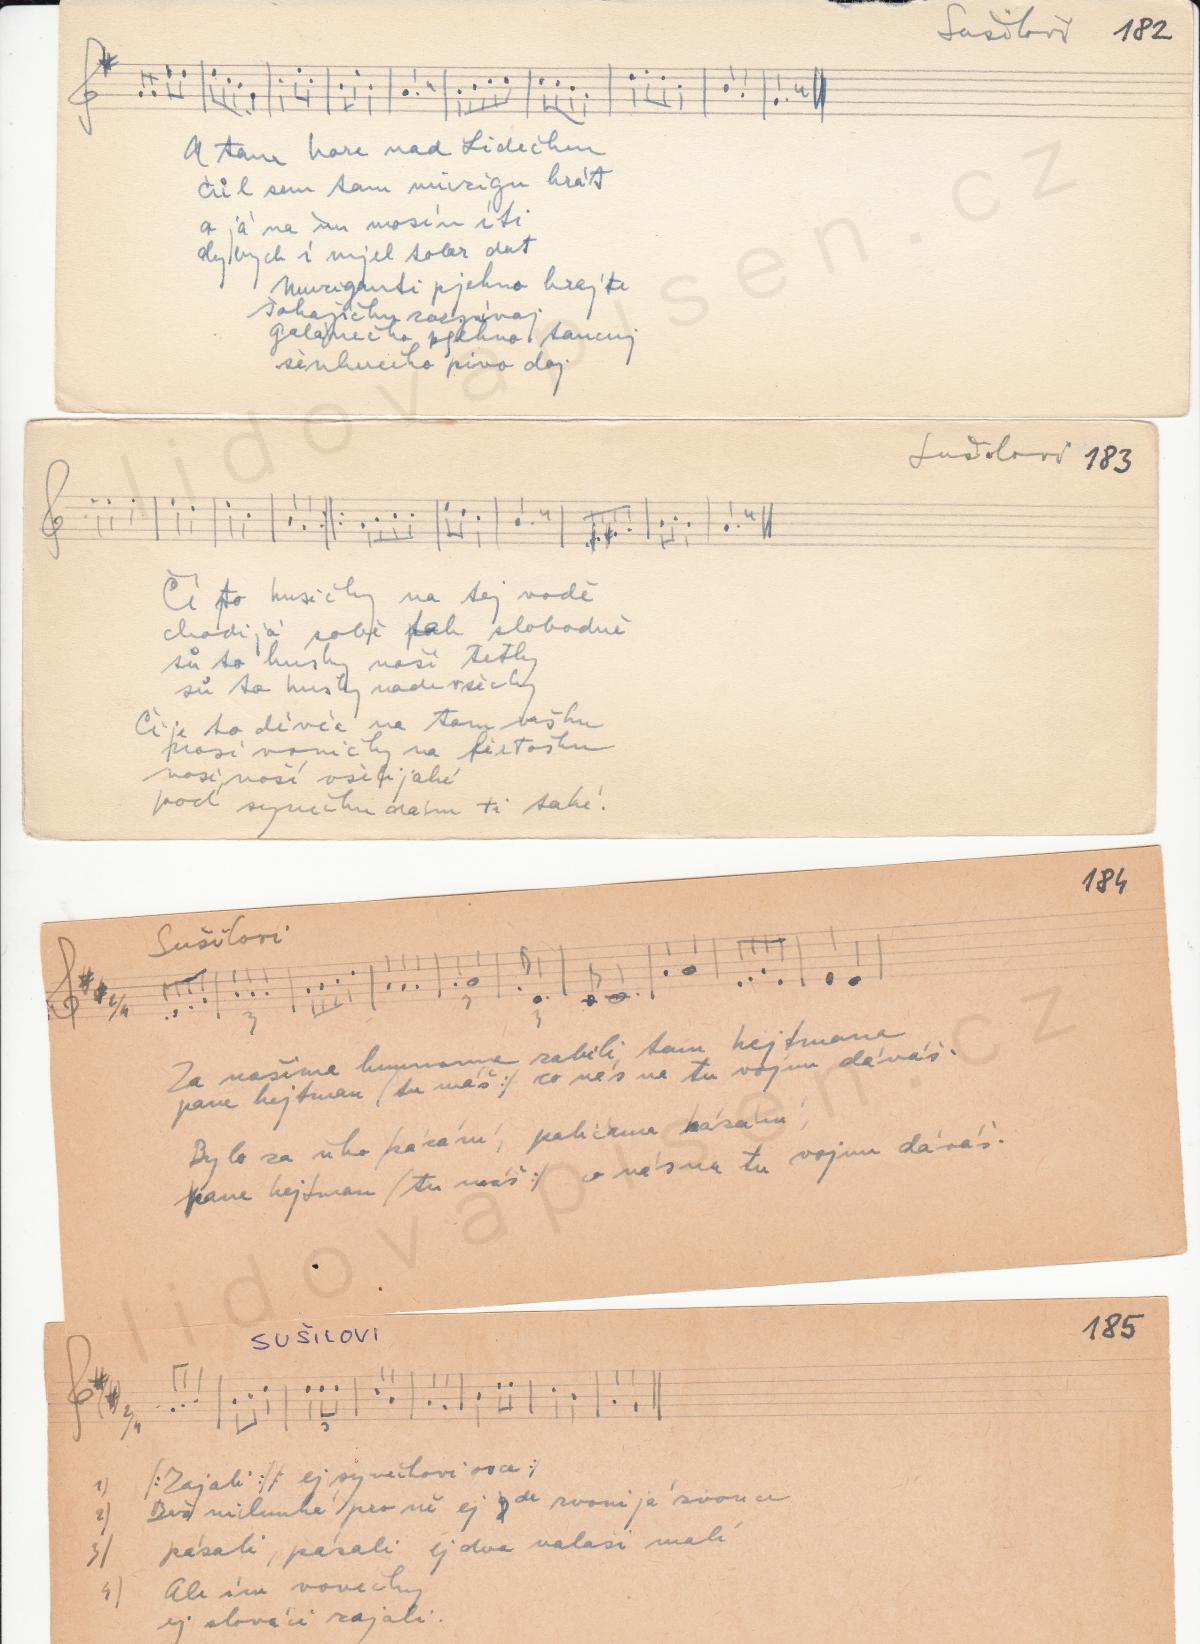 Sušilovi 182
A tam hore nad Lidečkem
čul sem tam muzigu hrát
a já na ňu mosím íti
dybych i mjel tolar dat
Muziganti pjekno hrajte
šohajíčku zazpívaj
galánečko pjekno tancuj
šenkurečko pivo daj
Sušilovi 183
Čí to husičky na tej vodě
chodijá sobě tak slobodně
sů to husky naší tetky
sů to husky nade všecky
Čí je to děvče na tom
prosí voničky na
nosí nosí všelijaké
poď synečku dám ti také.
184
Sušilovi
2/4
3
3
3
Za našima humnama zabili tam hejtmana
pane hejtman /tu máš:/ co nás na tu vojnu dáváš.
Bylo za ňho kázání, kázání,
pane hejtman /tu máš:/ co nás na tu vojnu dáváš.
SUŠILOVI 185
2/4
3
1) /:Zajali:// ej synečkovi ovce:/
2) Běž milunká pro ně ej de zvonijá zvonce
3/ pásali, pásali ej dva valaši malí
4) Ale im vovečky
ej slováci zajali.
lidovapisen.cz
lidovapisen.cz